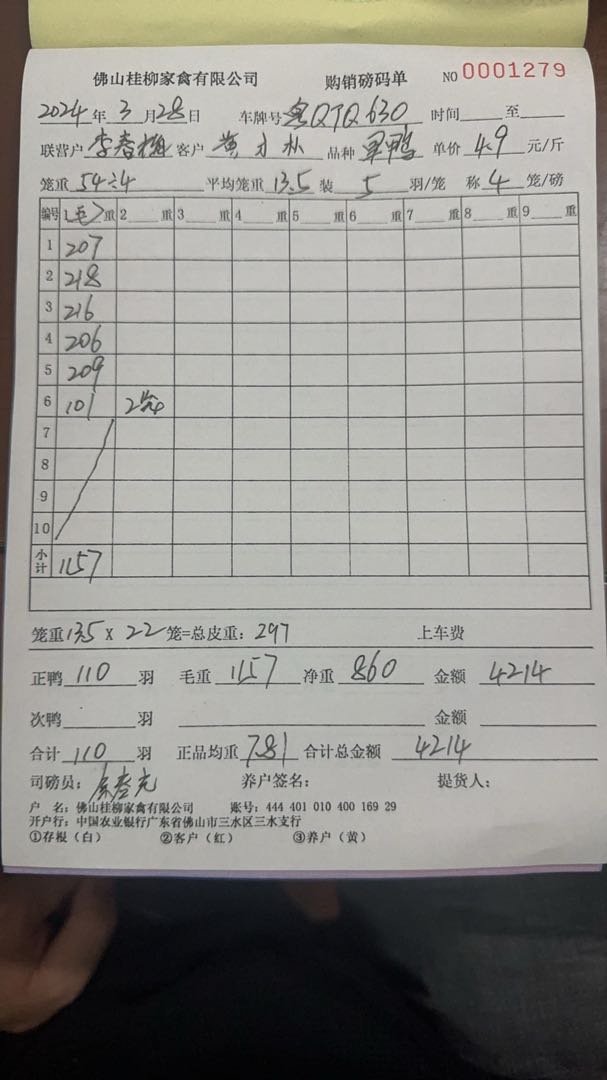 佛山桂柳家禽有限公司 购销磅码单 NO 0001279
2024年3月28日 车牌号 粤QTQ630 时间 至
联营户 李春梅 客户 黄才朴 品种 单价 4.9 元/斤
笼重 54÷4 平均笼重 13.5 装 5 羽/笼 称 4 笼/磅
编号 1(毛)重 2 重 3 重 4 重 5 重 6 重 7 重 8 重 9 重
1 207
2 218
3 216
4 206
5 209
6 101 2笼
7
8
9
10
小计 1157
笼重 13.5 X 22 笼=总皮重: 297 上车费
正鸭 110 羽 毛重 1157 净重 860 金额 4214
次鸭 羽 金额
合计 110 羽 正品均重 7.81 合计总金额 4214
司磅员: 养户签名: 提货人:
户 名: 佛山桂柳家禽有限公司 账号: 444 401 010 400 169 29
开户行: 中国农业银行广东省佛山市三水区三水支行
①存根(白) ②客户(红) ③养户(黄)